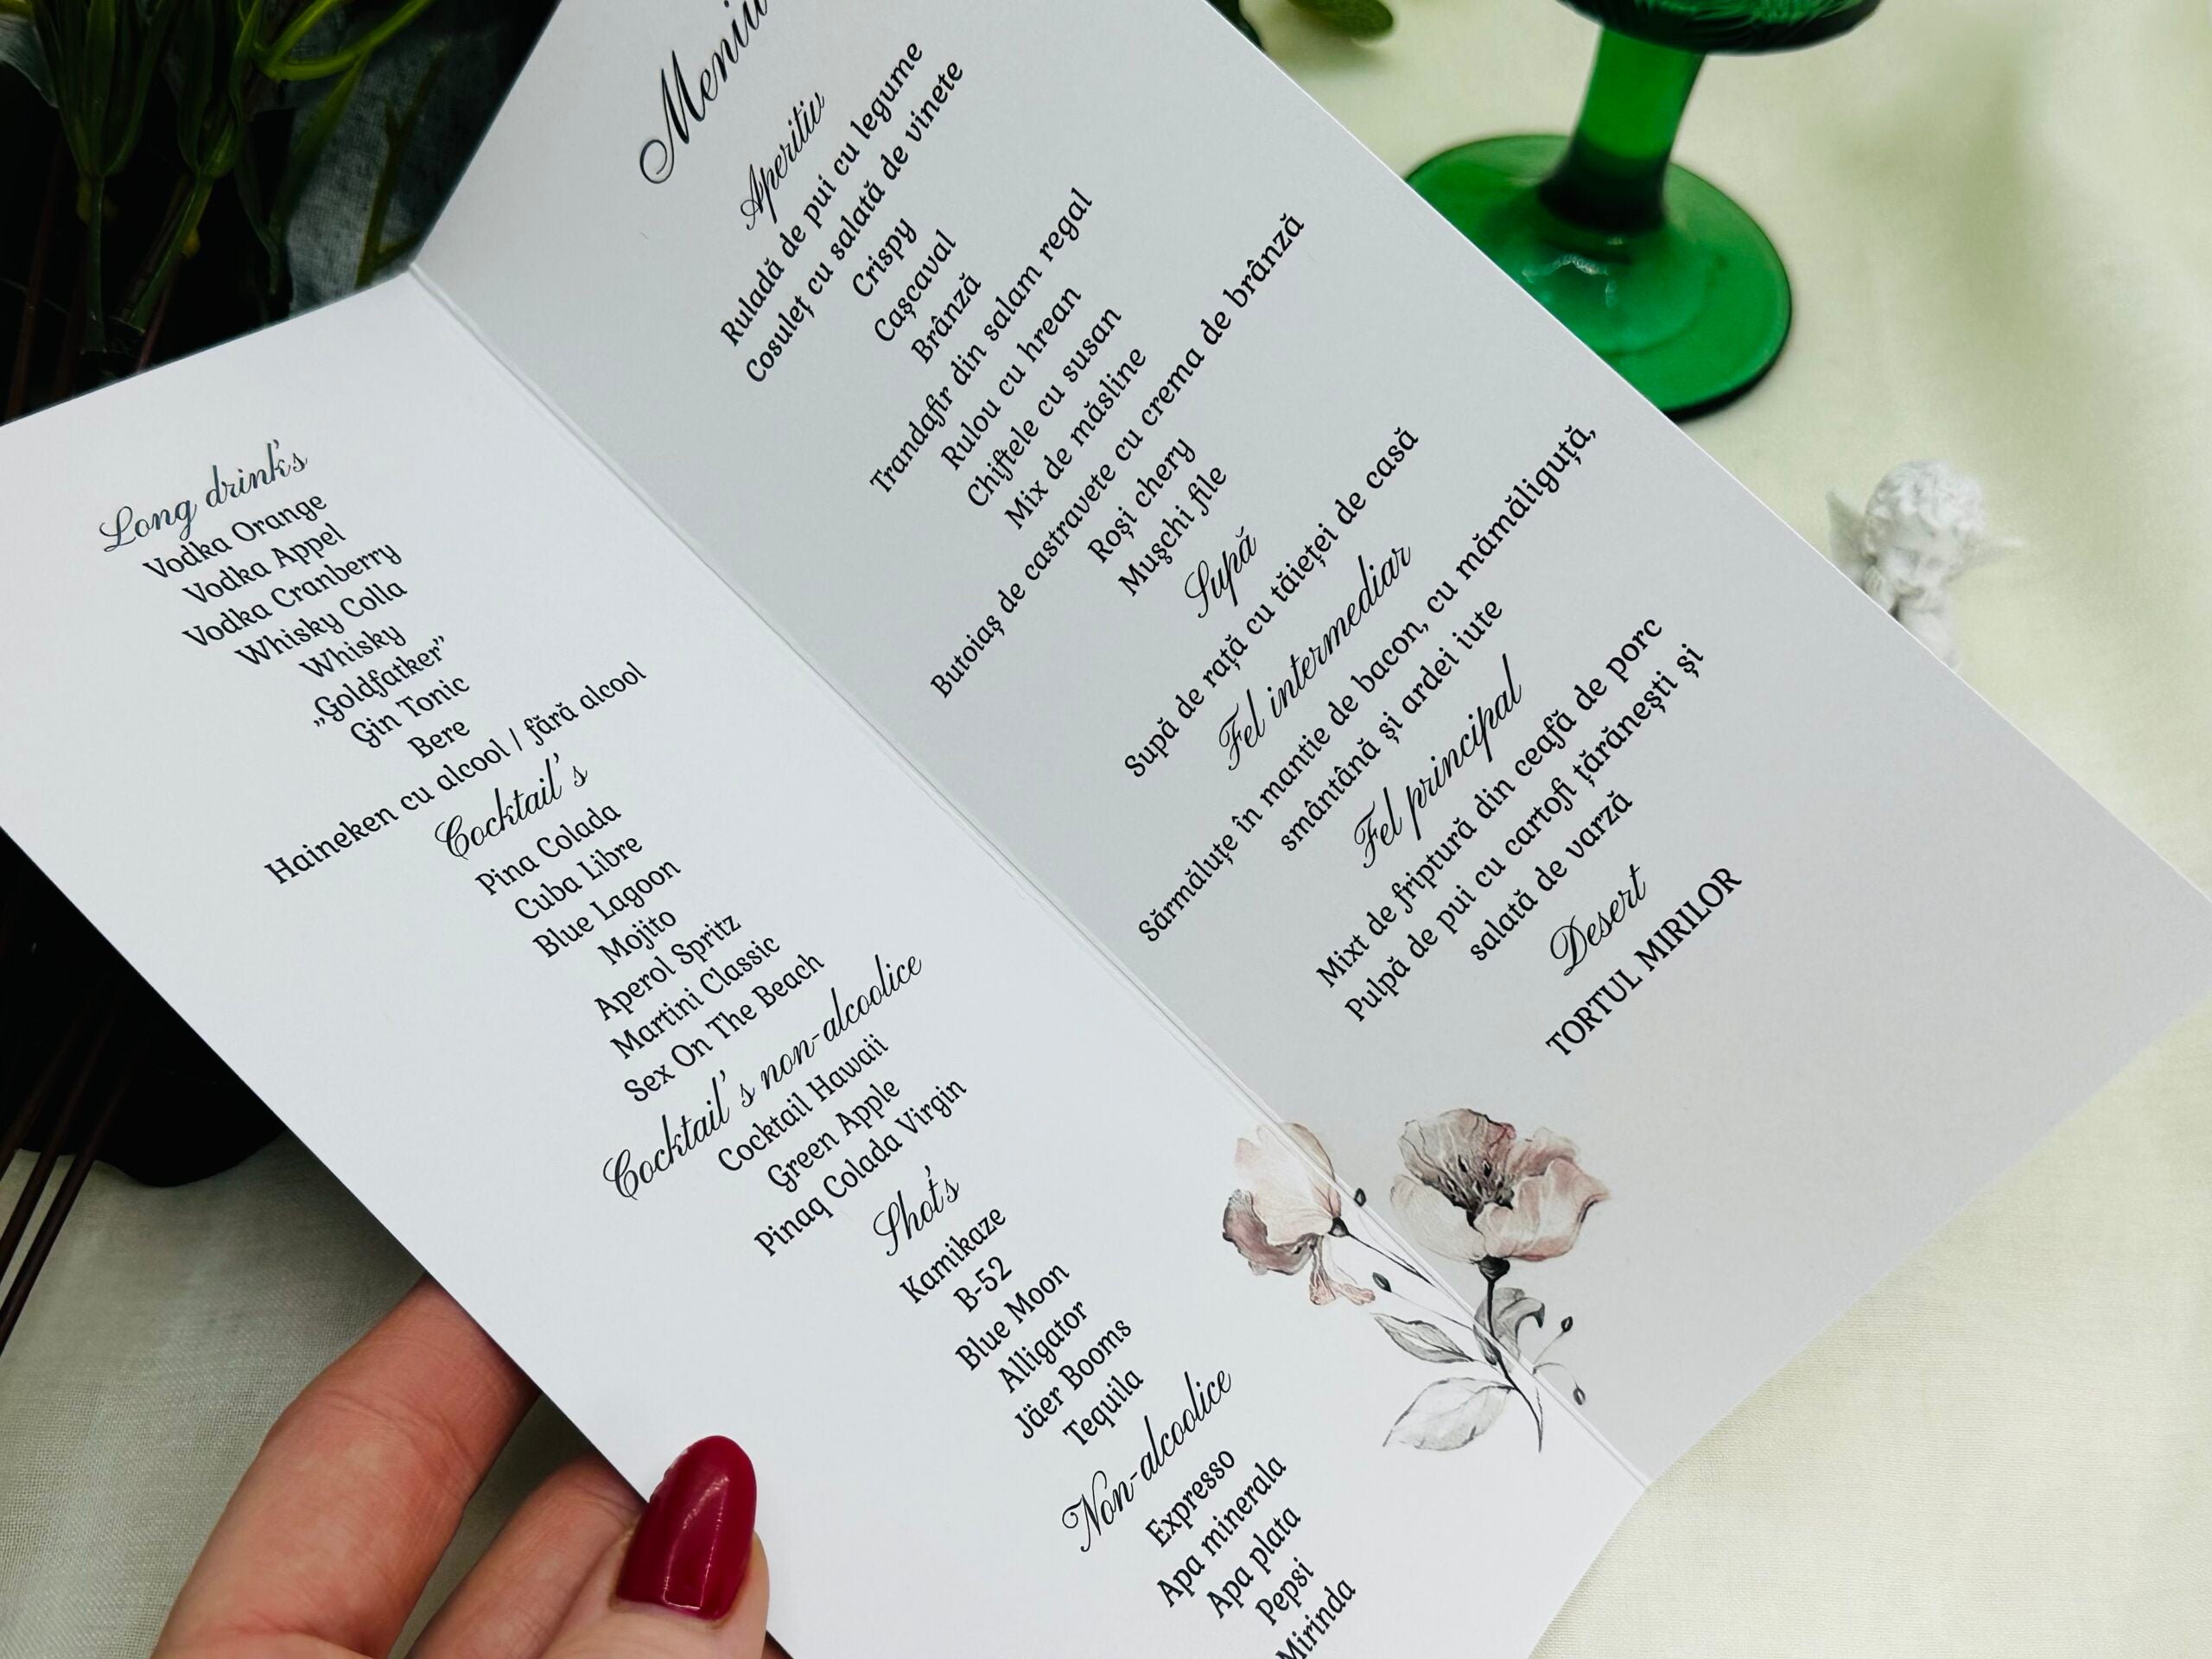 Long drink's
Vodka Orange
Vodka Appel
Vodka Cranberry
Whisky Colla
Whisky
„Goldfatker”
Gin Tonic
Bere
Haineken cu alcool / fără alcool
Cocktail's
Pina Colada
Cuba Libre
Blue Lagoon
Mojito
Aperol Spritz
Martini Classic
Sex On The Beach
Cocktail's non-alcoolice
Cocktail Hawaii
Green Apple
Pinaq Colada Virgin
Shot's
Kamikaze
B-52
Blue Moon
Alligator
Jäer Booms
Tequila
Non-alcoolice
Expresso
Apa minerala
Apa plata
Pepsi
Mirinda
Meniu
Aperitiv
Ruladă de pui cu legume
Cosuleț cu salată de vinete
Crispy
Cașcaval
Brânză
Trandafir din salam regal
Rulou cu hrean
Chiftele cu susan
Mix de măsline
Butoiaș de castravete cu crema de brânză
Roși chery
Mușchi file
Supă
Supă de rață cu tăieței de casă
Fel intermediar
Sărmăluțe în mantie de bacon, cu mămăliguță,
smântână și ardei iute
Fel principal
Mixt de friptură din ceafă de porc
Pulpă de pui cu cartofi țărănești și
salată de varză
Desert
TORTUL MIRILOR